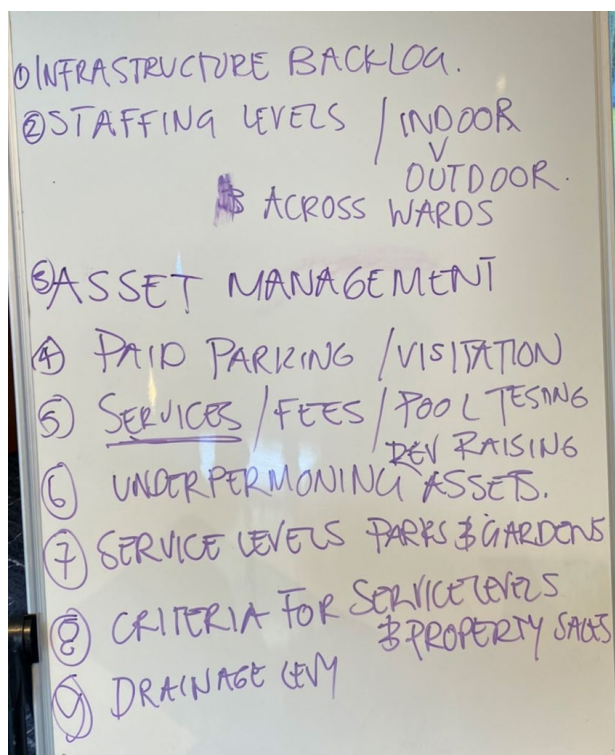 ① INFRASTRUCTURE BACKLOG.
② STAFFING LEVELS / INDOOR
V
OUTDOOR.
$ ACROSS WARDS
③ ASSET MANAGEMENT
④ PAID PARKING / VISITATION
⑤ SERVICES / FEES / POOL TESTING
REV RAISING
⑥ UNDERPERMONING ASSETS.
⑦ SERVICE LEVELS PARKS & GARDENS
⑧ CRITERIA FOR SERVICE LEVELS
& PROPERTY SALES
⑨ DRAINAGE LEVY